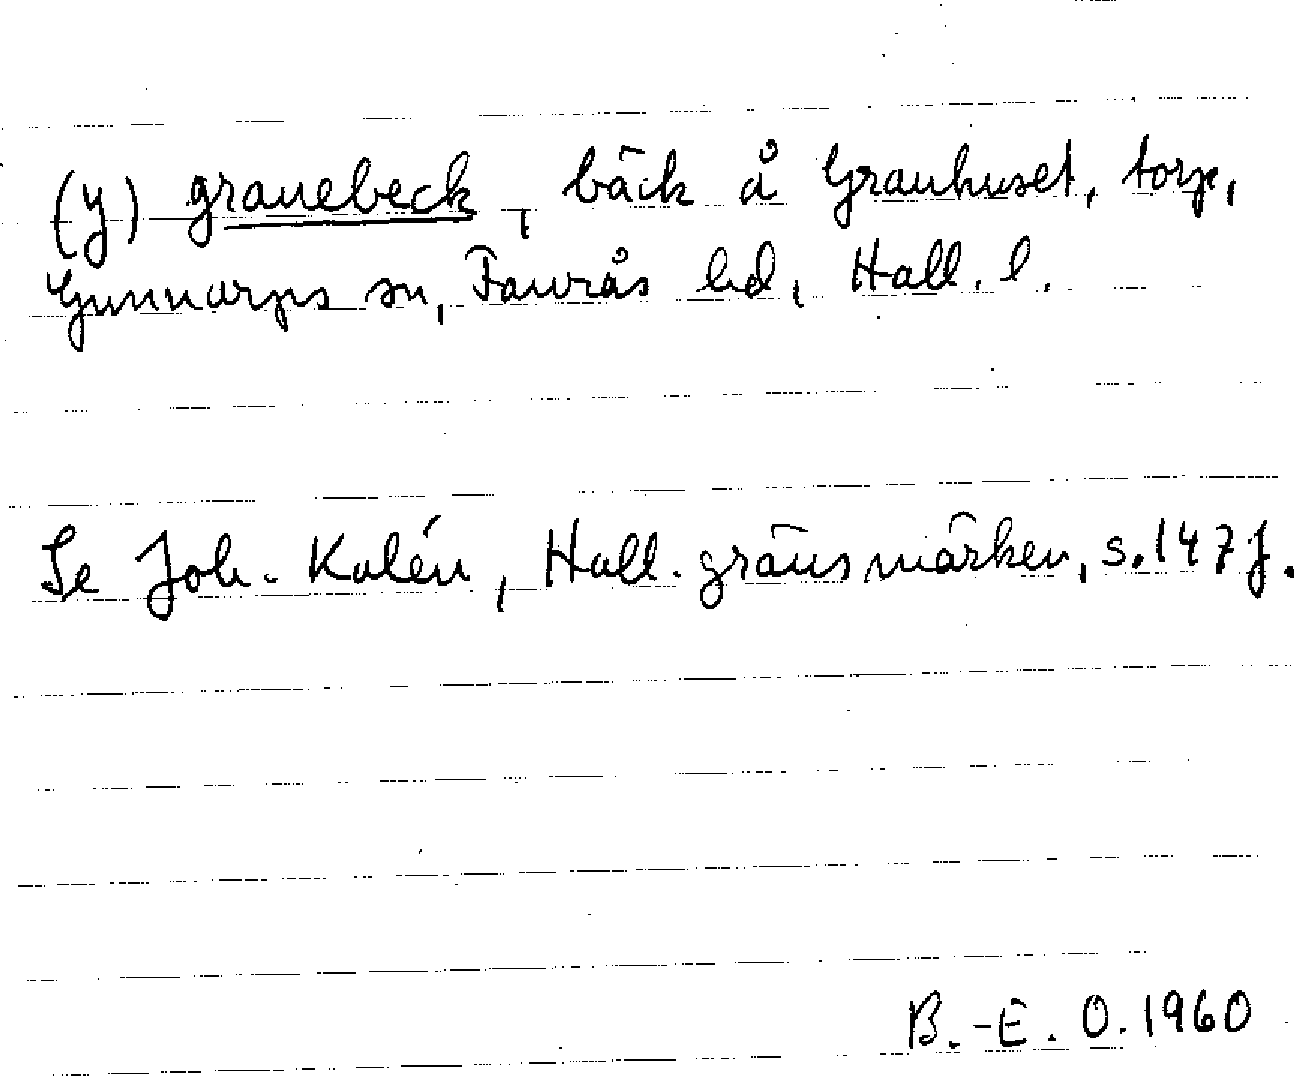 (y) granebeck, bäck å Granhuset, torp,
Gunnarps sn, Faurås hd, Hall. l.
Se Joh. Kalén, Hall. gränsmärken, s. 147 f.
B.-E. O. 1960